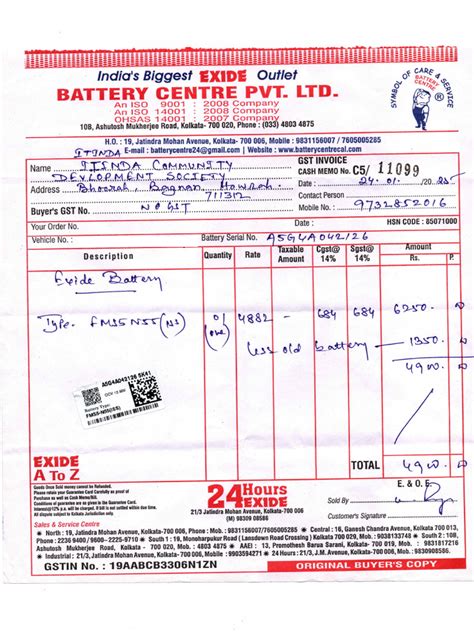 India's Biggest EXIDE Outlet
BATTERY CENTRE PVT. LTD.
An ISO 9001 : 2008 Company
An ISO 14001 : 2008 Company
OHSAS 14001 : 2007 Company
10B, Ashutosh Mukherjee Road, Kolkata- 700 020, Phone : (033) 4803 4875
SYMBOL OF CARE & SERVICE
BATTERY CENTRE
H.O. : 19, Jatindra Mohan Avenue, Kolkata- 700 006, Mobile : 9831156007/ 7605005285
E-mail : batterycentre24@gmail.com | Website : www.batterycentrecal.com
ITINDA
Name ITINDA COMMUNITY
DEVLOPMENT SOCIETY
Address Bhoorah, Bagnan, Howrah
711312
Buyer's GST No. NO GST
GST INVOICE
CASH MEMO No. C5/ 11099
Date : 24-01 2025
Contact Person
Mobile No. : 9732852016
Your Order No. HSN CODE : 85071000
Vehicle No. : Battery Serial No. A5G4A042126
Description Quantity Rate Taxable Amount Cgst@ 14% Sgst@ 14% Amount
Rs. P.
Exide Battery
Type. FMS5N55(NS) 01 (one) 4882 - 684 684 6250
less old battery 1350
4900
A5G4A042126 5K41
Battery Type:
TOTAL 4900
EXIDE
A To Z
Goods Once Sold money cannot be Refunded.
Please retain your Guarantee Card Carefully as proof of
Purchase as well as Cash Memo/Bill.
Conditions of guarantee as shown in the Guarantee Card.
Interest@12% p.a. will be charged. If bill is not settled within due date.
All dispute subject to Kolkata Jurisdiction only.
24 Hours
EXIDE
21/3 Jatindra Mohan Avenue, Kolkata-700 006
(M) 98309 08586
E. & O. E.
Sold By
Customer's Signature
Sales & Service Centre
North : 19, Jatindra Mohan Avenue, Kolkata-700 006, Phone : Mob. : 9831156007/7605005285 Central : 16, Ganesh Chandra Avenue, Kolkata-700 013,
Phone : 2236 9400 / 9600-2225-9710 South 1 : 19, Monoharpukur Road ( Lansdown Road Crossing ) Kolkata-700 029, Mob. : 9038133748 South 2 : 10B,
Ashutosh Mukherjee Road, Kolkata - 700 020, Mob. : 4803 4875 AAEI : 13, Promothesh Barua Sarani, Kolkata- 700 019, Mob. : 9831817216
Industrial : 21/3, Jatindra Mohan Avenue, Kolkata-700 006, Mobile : 9903594271 24 Hours : 21/3, J.M. Avenue, Kolkata- 700 006. Mob.: 9830908586.
GSTIN No. : 19AABCB3306N1ZN
ORIGINAL BUYER'S COPY